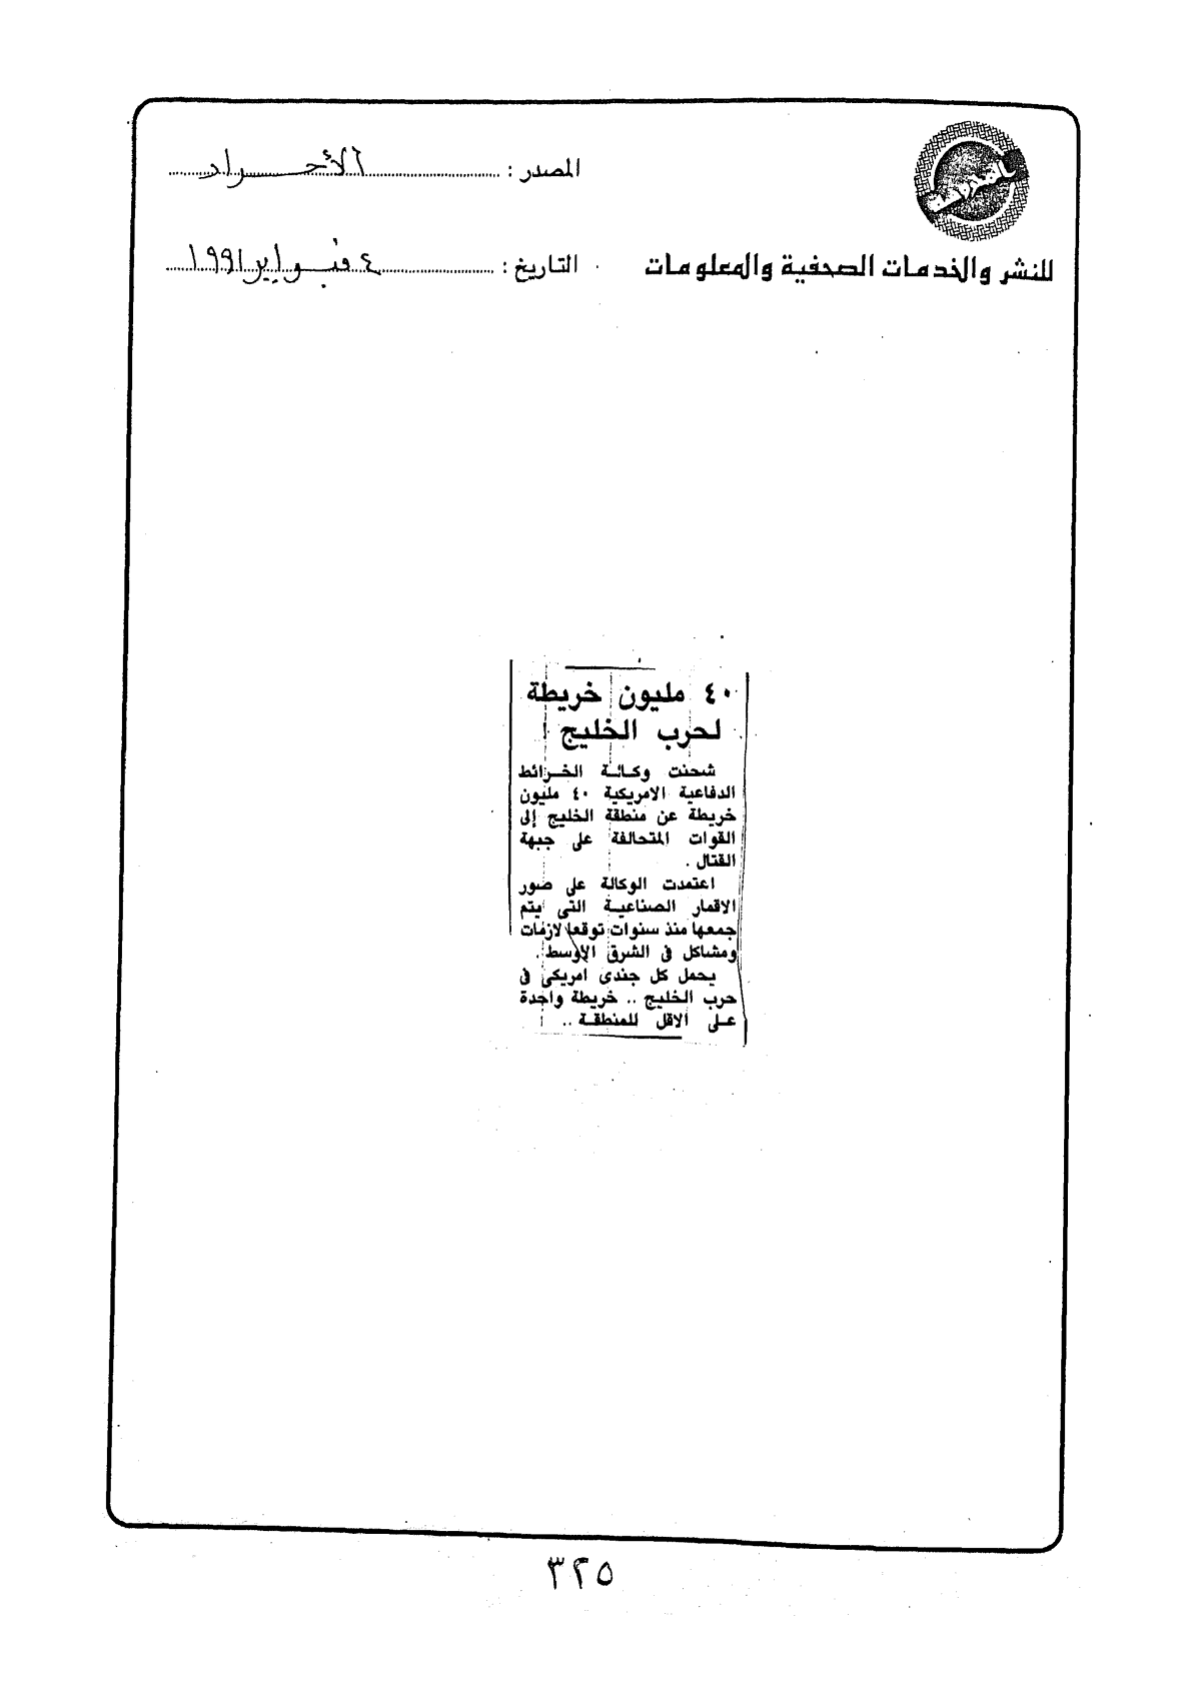 المصدر : الأحرار
للنشر والخدمات الصحفية والمعلومات
التاريخ : ٤ فبراير ١٩٩١
٤٠ مليون خريطة
لحرب الخليج !
شحنت وكالة الخرائط
الدفاعية الامريكية ٤٠ مليون
خريطة عن منطقة الخليج إلى
القوات المتحالفة على جبهة
القتال .
اعتمدت الوكالة على صور
الاقمار الصناعية التى يتم
جمعها منذ سنوات توقعا لازمات
ومشاكل فى الشرق الأوسط .
يحمل كل جندى امريكى فى
حرب الخليج .. خريطة واحدة
على الاقل للمنطقة ..
٣٢٥